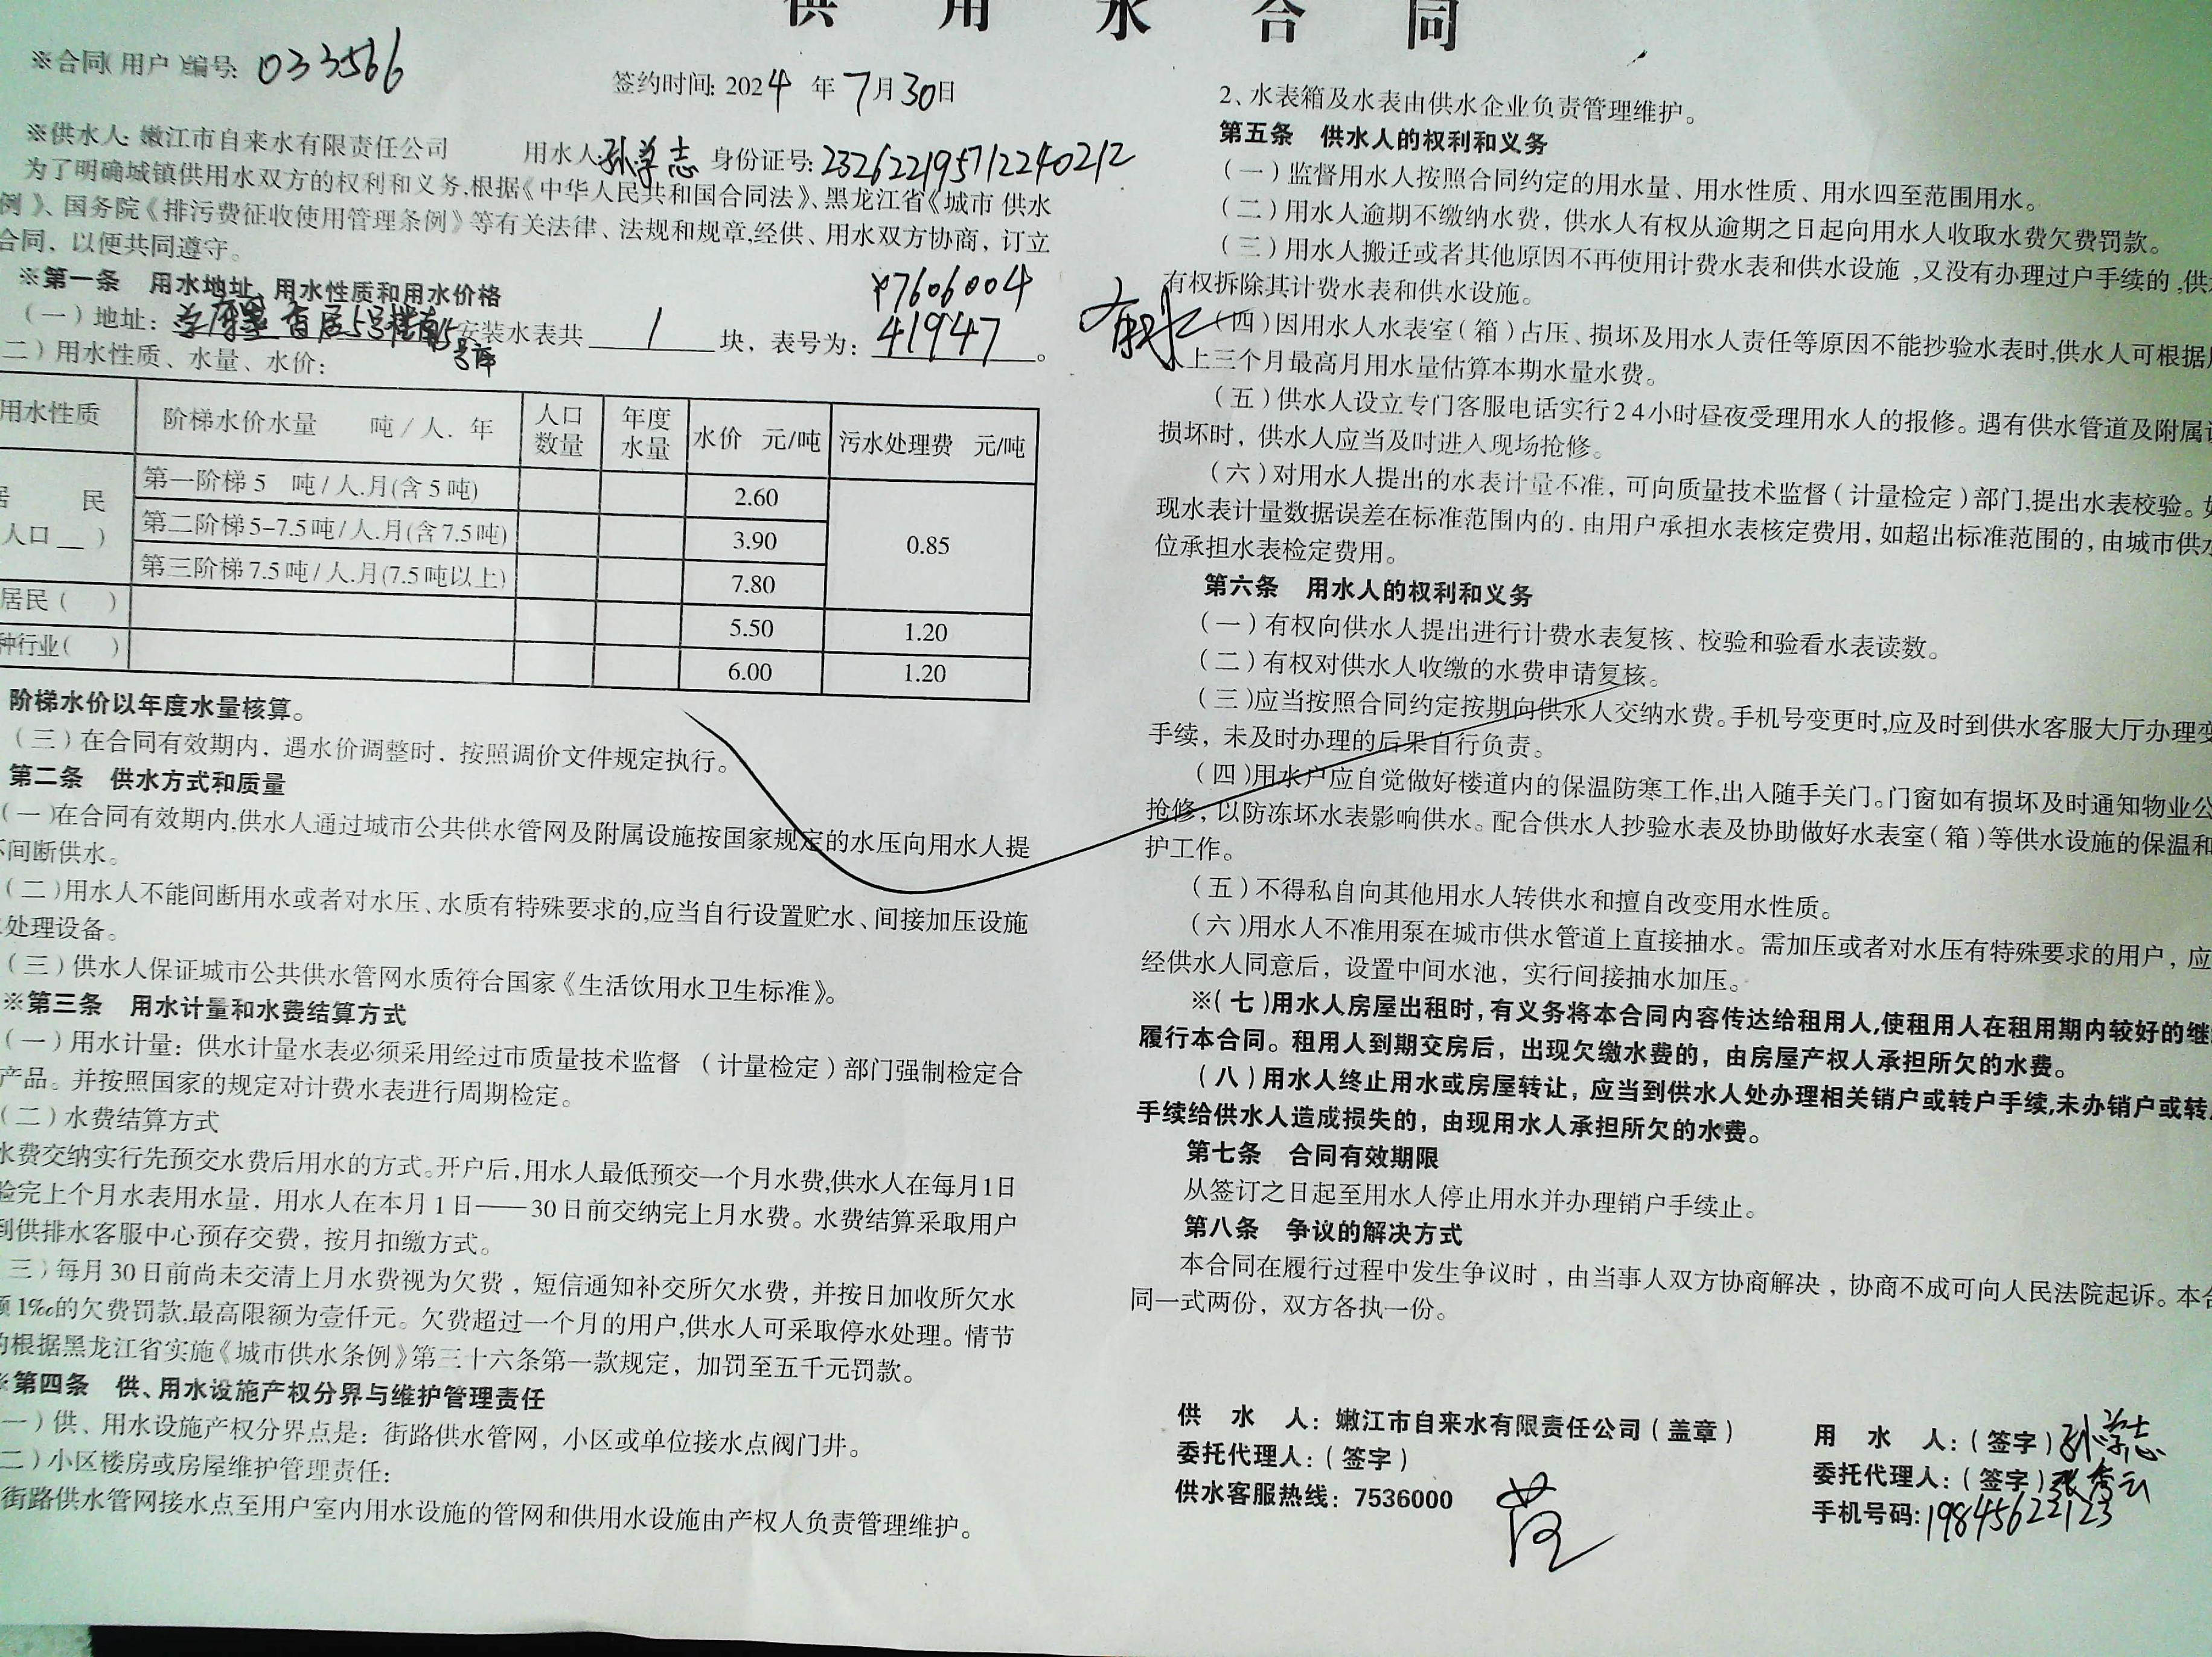 供用水合同
※合同(用户)编号: 033566
签约时间: 2024 年 7月30日
※供水人: 嫩江市自来水有限责任公司 用水人:孙学志 身份证号:232622195712240212
为了明确城镇供用水双方的权利和义务,根据《中华人民共和国合同法》、黑龙江省《城市 供水
例》、国务院《排污费征收使用管理条例》等有关法律、法规和规章,经供、用水双方协商, 订立
合同, 以便共同遵守。
※第一条 用水地址、用水性质和用水价格
Y7606004
(一)地址: 5号楼南 安装水表共 1 块, 表号为: 41947 。
二)用水性质、水量、水价:
用水性质 阶梯水价水量 吨/人. 年 人口数量 年度水量 水价 元/吨 污水处理费 元/吨
民 第一阶梯 5 吨/人.月(含 5 吨) 2.60 0.85
人口__) 第二阶梯 5-7.5 吨/人.月(含 7.5 吨) 3.90
第三阶梯 7.5 吨/人.月(7.5 吨以上) 7.80
居民( ) 5.50 1.20
种行业( ) 6.00 1.20
阶梯水价以年度水量核算。
(三)在合同有效期内, 遇水价调整时, 按照调价文件规定执行。
第二条 供水方式和质量
(一)在合同有效期内,供水人通过城市公共供水管网及附属设施按国家规定的水压向用水人提
不间断供水。
(二)用水人不能间断用水或者对水压、水质有特殊要求的,应当自行设置贮水、间接加压设施
处理设备。
(三)供水人保证城市公共供水管网水质符合国家《生活饮用水卫生标准》。
※第三条 用水计量和水费结算方式
(一)用水计量: 供水计量水表必须采用经过市质量技术监督 (计量检定)部门强制检定合
产品。并按照国家的规定对计费水表进行周期检定。
(二)水费结算方式
水费交纳实行先预交水费后用水的方式。开户后,用水人最低预交一个月水费,供水人在每月1日
验完上个月水表用水量, 用水人在本月 1 日——30 日前交纳完上月水费。水费结算采取用户
到供排水客服中心预存交费, 按月扣缴方式。
三)每月 30 日前尚未交清上月水费视为欠费 , 短信通知补交所欠水费, 并按日加收所欠水
额 1‰的欠费罚款,最高限额为壹仟元。欠费超过一个月的用户,供水人可采取停水处理。情节
的根据黑龙江省实施《城市供水条例》第三十六条第一款规定, 加罚至五千元罚款。
※第四条 供、用水设施产权分界与维护管理责任
一)供、用水设施产权分界点是: 街路供水管网, 小区或单位接水点阀门井。
二)小区楼房或房屋维护管理责任:
街路供水管网接水点至用户室内用水设施的管网和供用水设施由产权人负责管理维护。
2、水表箱及水表由供水企业负责管理维护。
第五条 供水人的权利和义务
(一)监督用水人按照合同约定的用水量、用水性质、用水四至范围用水。
(二)用水人逾期不缴纳水费, 供水人有权从逾期之日起向用水人收取水费欠费罚款。
(三)用水人搬迁或者其他原因不再使用计费水表和供水设施 ,又没有办理过户手续的 ,供
有权拆除其计费水表和供水设施。
(四)因用水人水表室(箱)占压、损坏及用水人责任等原因不能抄验水表时,供水人可根据
上三个月最高月用水量估算本期水量水费。
(五)供水人设立专门客服电话实行24小时昼夜受理用水人的报修。遇有供水管道及附属
损坏时, 供水人应当及时进入现场抢修。
(六)对用水人提出的水表计量不准, 可向质量技术监督(计量检定)部门,提出水表校验。如
现水表计量数据误差在标准范围内的, 由用户承担水表核定费用, 如超出标准范围的, 由城市供水
位承担水表检定费用。
第六条 用水人的权利和义务
(一)有权向供水人提出进行计费水表复核、校验和验看水表读数。
(二)有权对供水人收缴的水费申请复核。
(三)应当按照合同约定按期向供水人交纳水费。手机号变更时,应及时到供水客服大厅办理变
手续, 未及时办理的后果自行负责。
(四)用水户应自觉做好楼道内的保温防寒工作,出入随手关门。门窗如有损坏及时通知物业公
抢修, 以防冻坏水表影响供水。配合供水人抄验水表及协助做好水表室(箱)等供水设施的保温和
护工作。
(五)不得私自向其他用水人转供水和擅自改变用水性质。
(六)用水人不准用泵在城市供水管道上直接抽水。需加压或者对水压有特殊要求的用户, 应
经供水人同意后, 设置中间水池, 实行间接抽水加压。
※(七)用水人房屋出租时, 有义务将本合同内容传达给租用人,使租用人在租用期内较好的继
履行本合同。租用人到期交房后, 出现欠缴水费的, 由房屋产权人承担所欠的水费。
(八)用水人终止用水或房屋转让, 应当到供水人处办理相关销户或转户手续,未办销户或转
手续给供水人造成损失的, 由现用水人承担所欠的水费。
第七条 合同有效期限
从签订之日起至用水人停止用水并办理销户手续止。
第八条 争议的解决方式
本合同在履行过程中发生争议时 , 由当事人双方协商解决 , 协商不成可向人民法院起诉。本合
同一式两份, 双方各执一份。
供 水 人: 嫩江市自来水有限责任公司(盖章)
委托代理人:(签字)
供水客服热线: 7536000
用 水 人:(签字)孙学志
委托代理人:(签字)张秀云
手机号码:19845622123